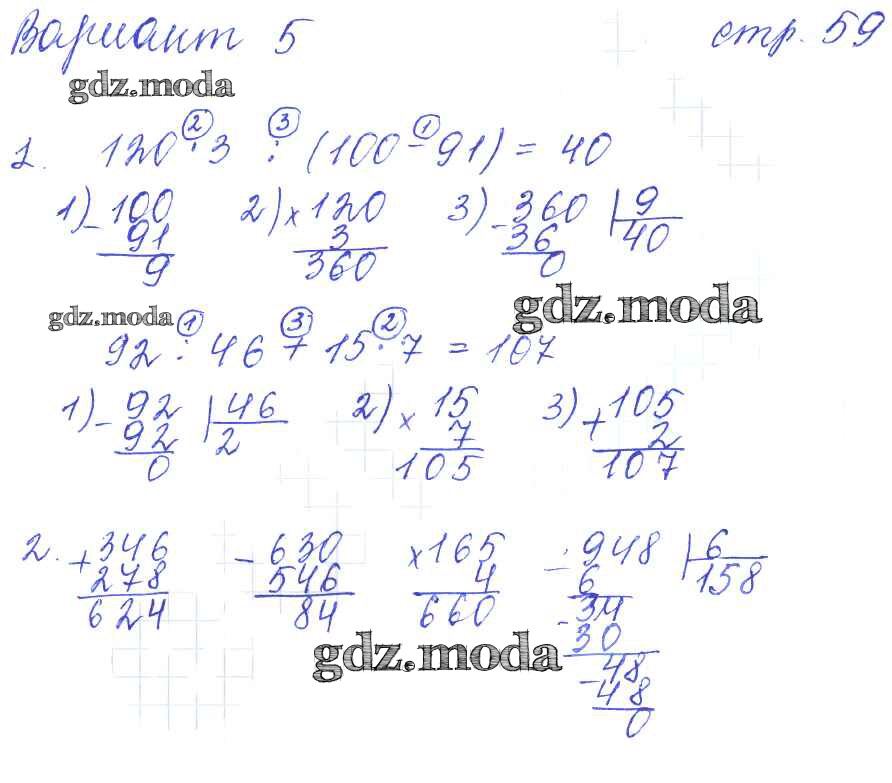 Вариант 5 стр. 59
gdz.moda
② ③ ①
1. 120 · 3 : (100 - 91) = 40
1) - 100 2) × 120 3) - 360 | 9
91 3 36 40
9 360 0
gdz.moda
gdz.moda ① ③ ②
92 : 46 + 15 · 7 = 107
1) - 92 | 46 2) × 15 3) + 105
92 2 7 2
0 105 107
2. + 346 - 630 × 165 - 948 | 6
278 546 4 6 158
624 84 660 - 34
30
gdz.moda
- 48
48
0